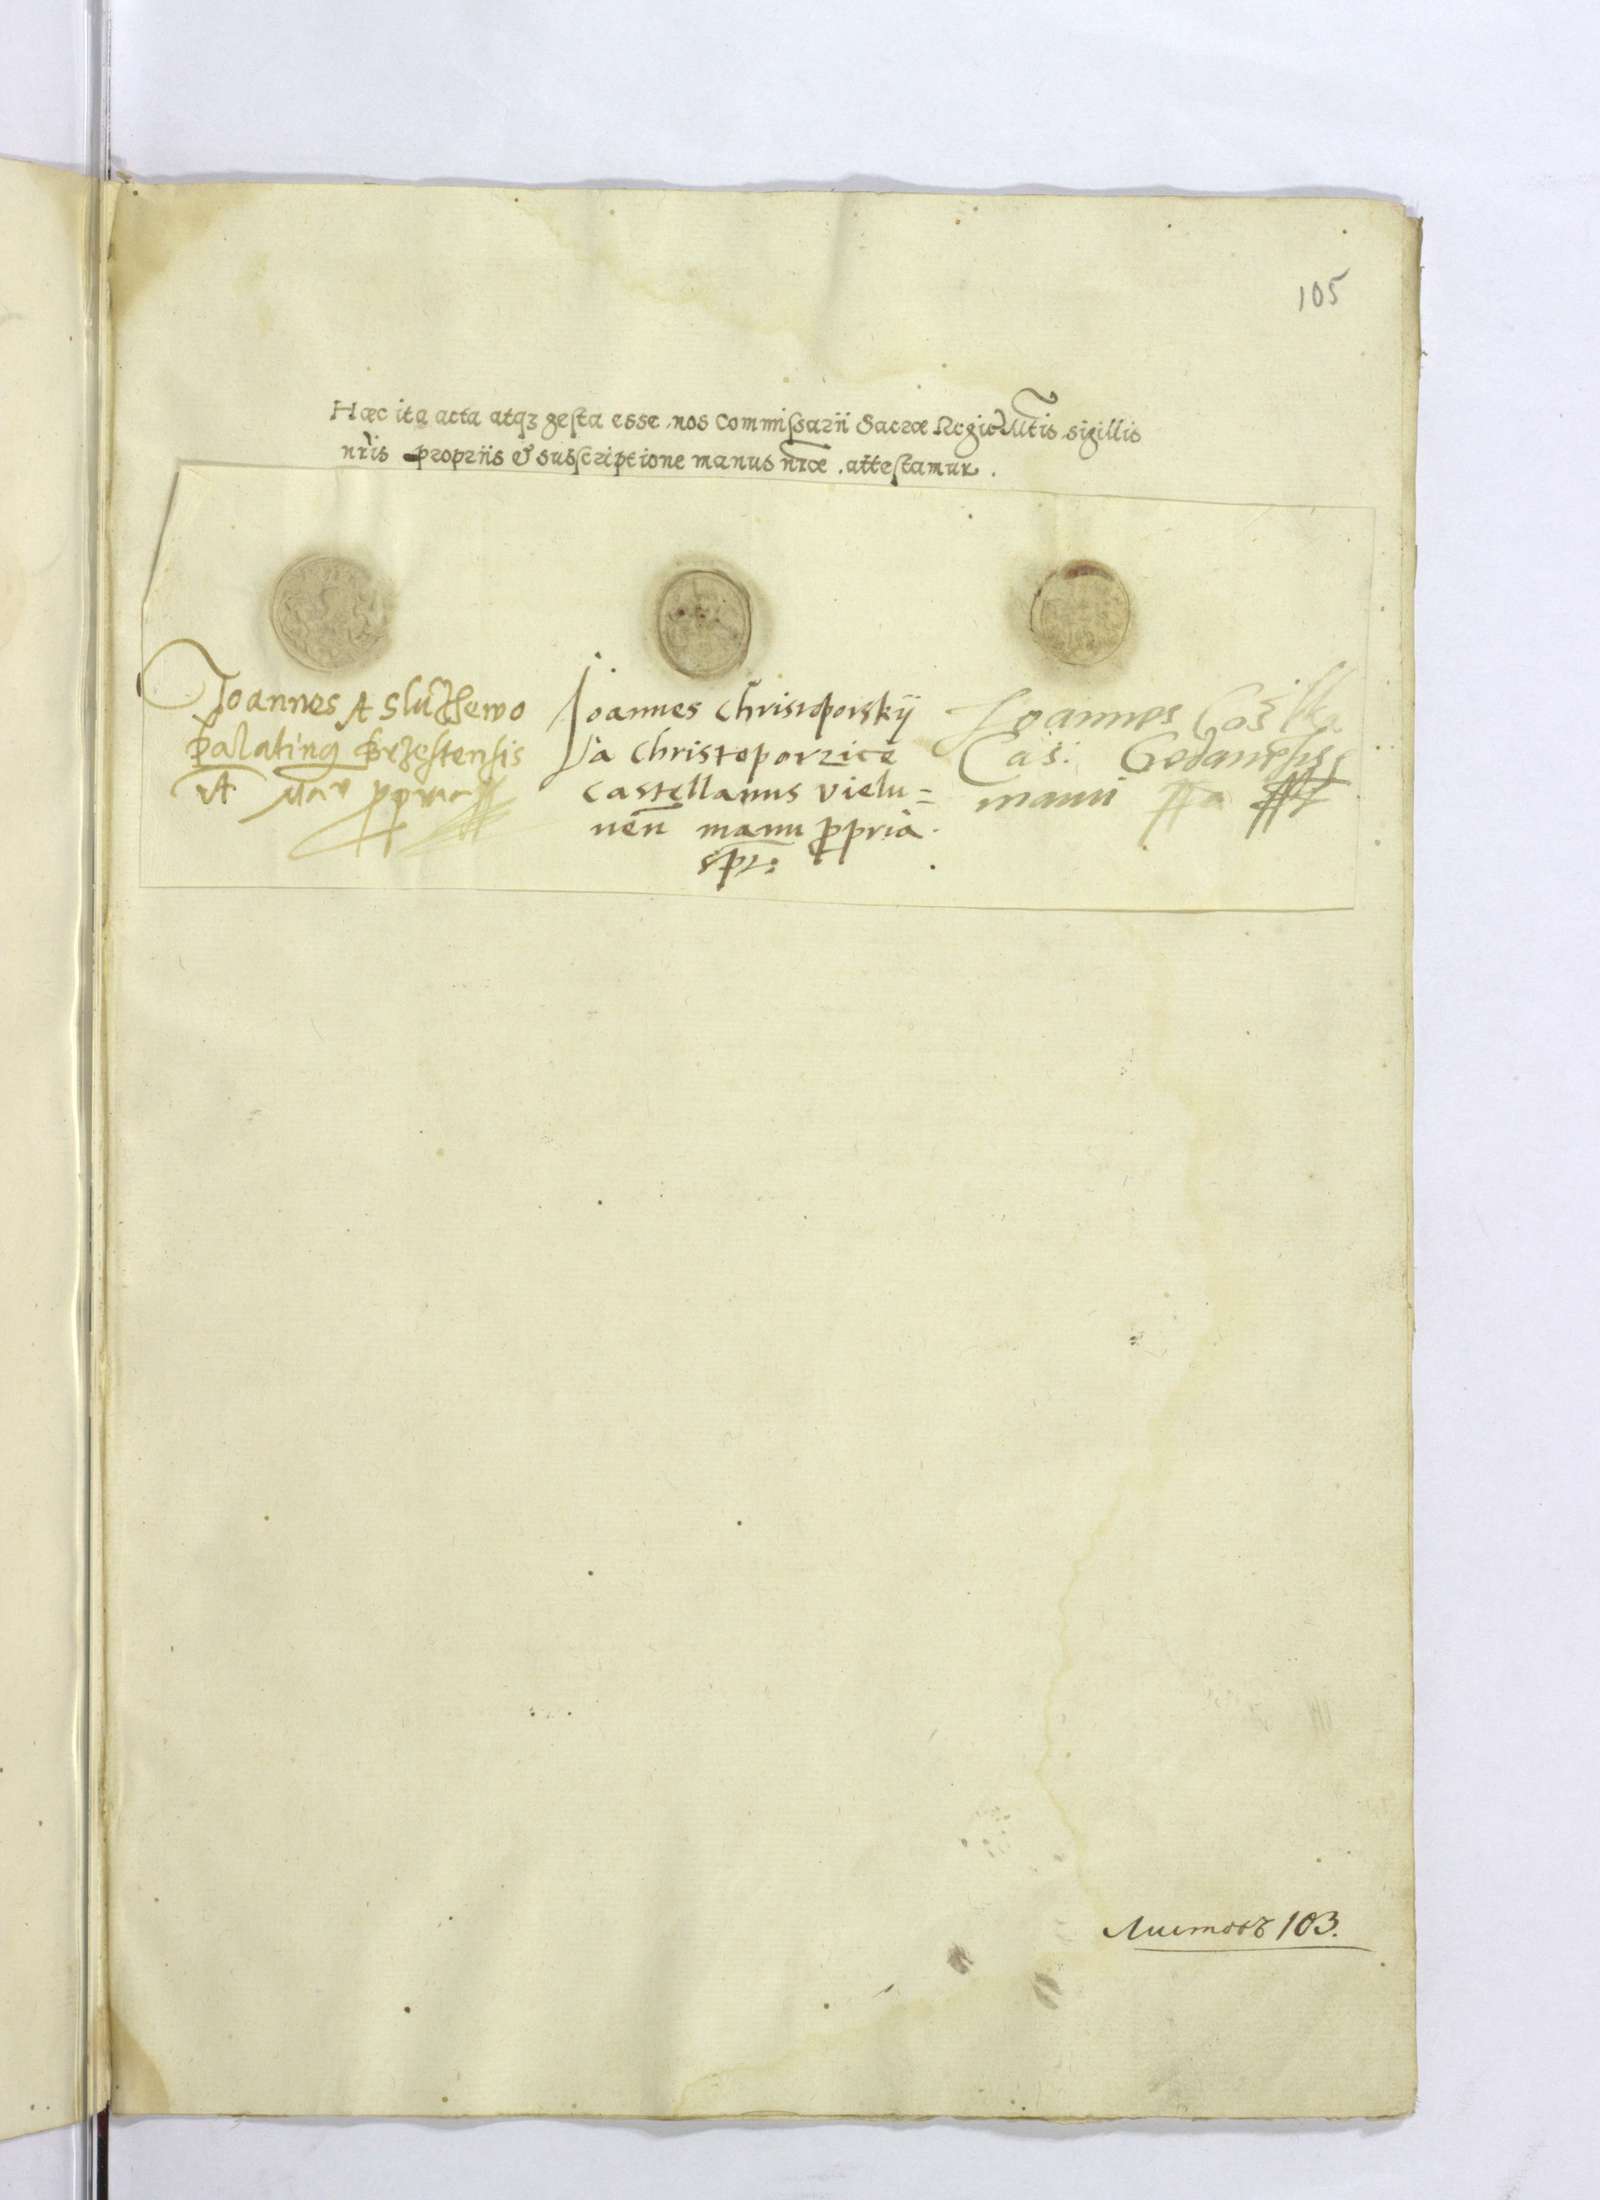 105
Hæc ita acta atqz gesta esse nos Commissarii Sacræ Regiæ Mtis sigillis
nris propriis & suscriptione manus nræ attestamur.
Joannes A Sluzewo
palatinq Brzestensis
Joannes Christoporskÿ
Da Christoporzice
Castellanus Vielu=
nen manu ppria
spt:
Joannes Costka
Cas: Gedanensis
manu ppa
Листовъ 103.